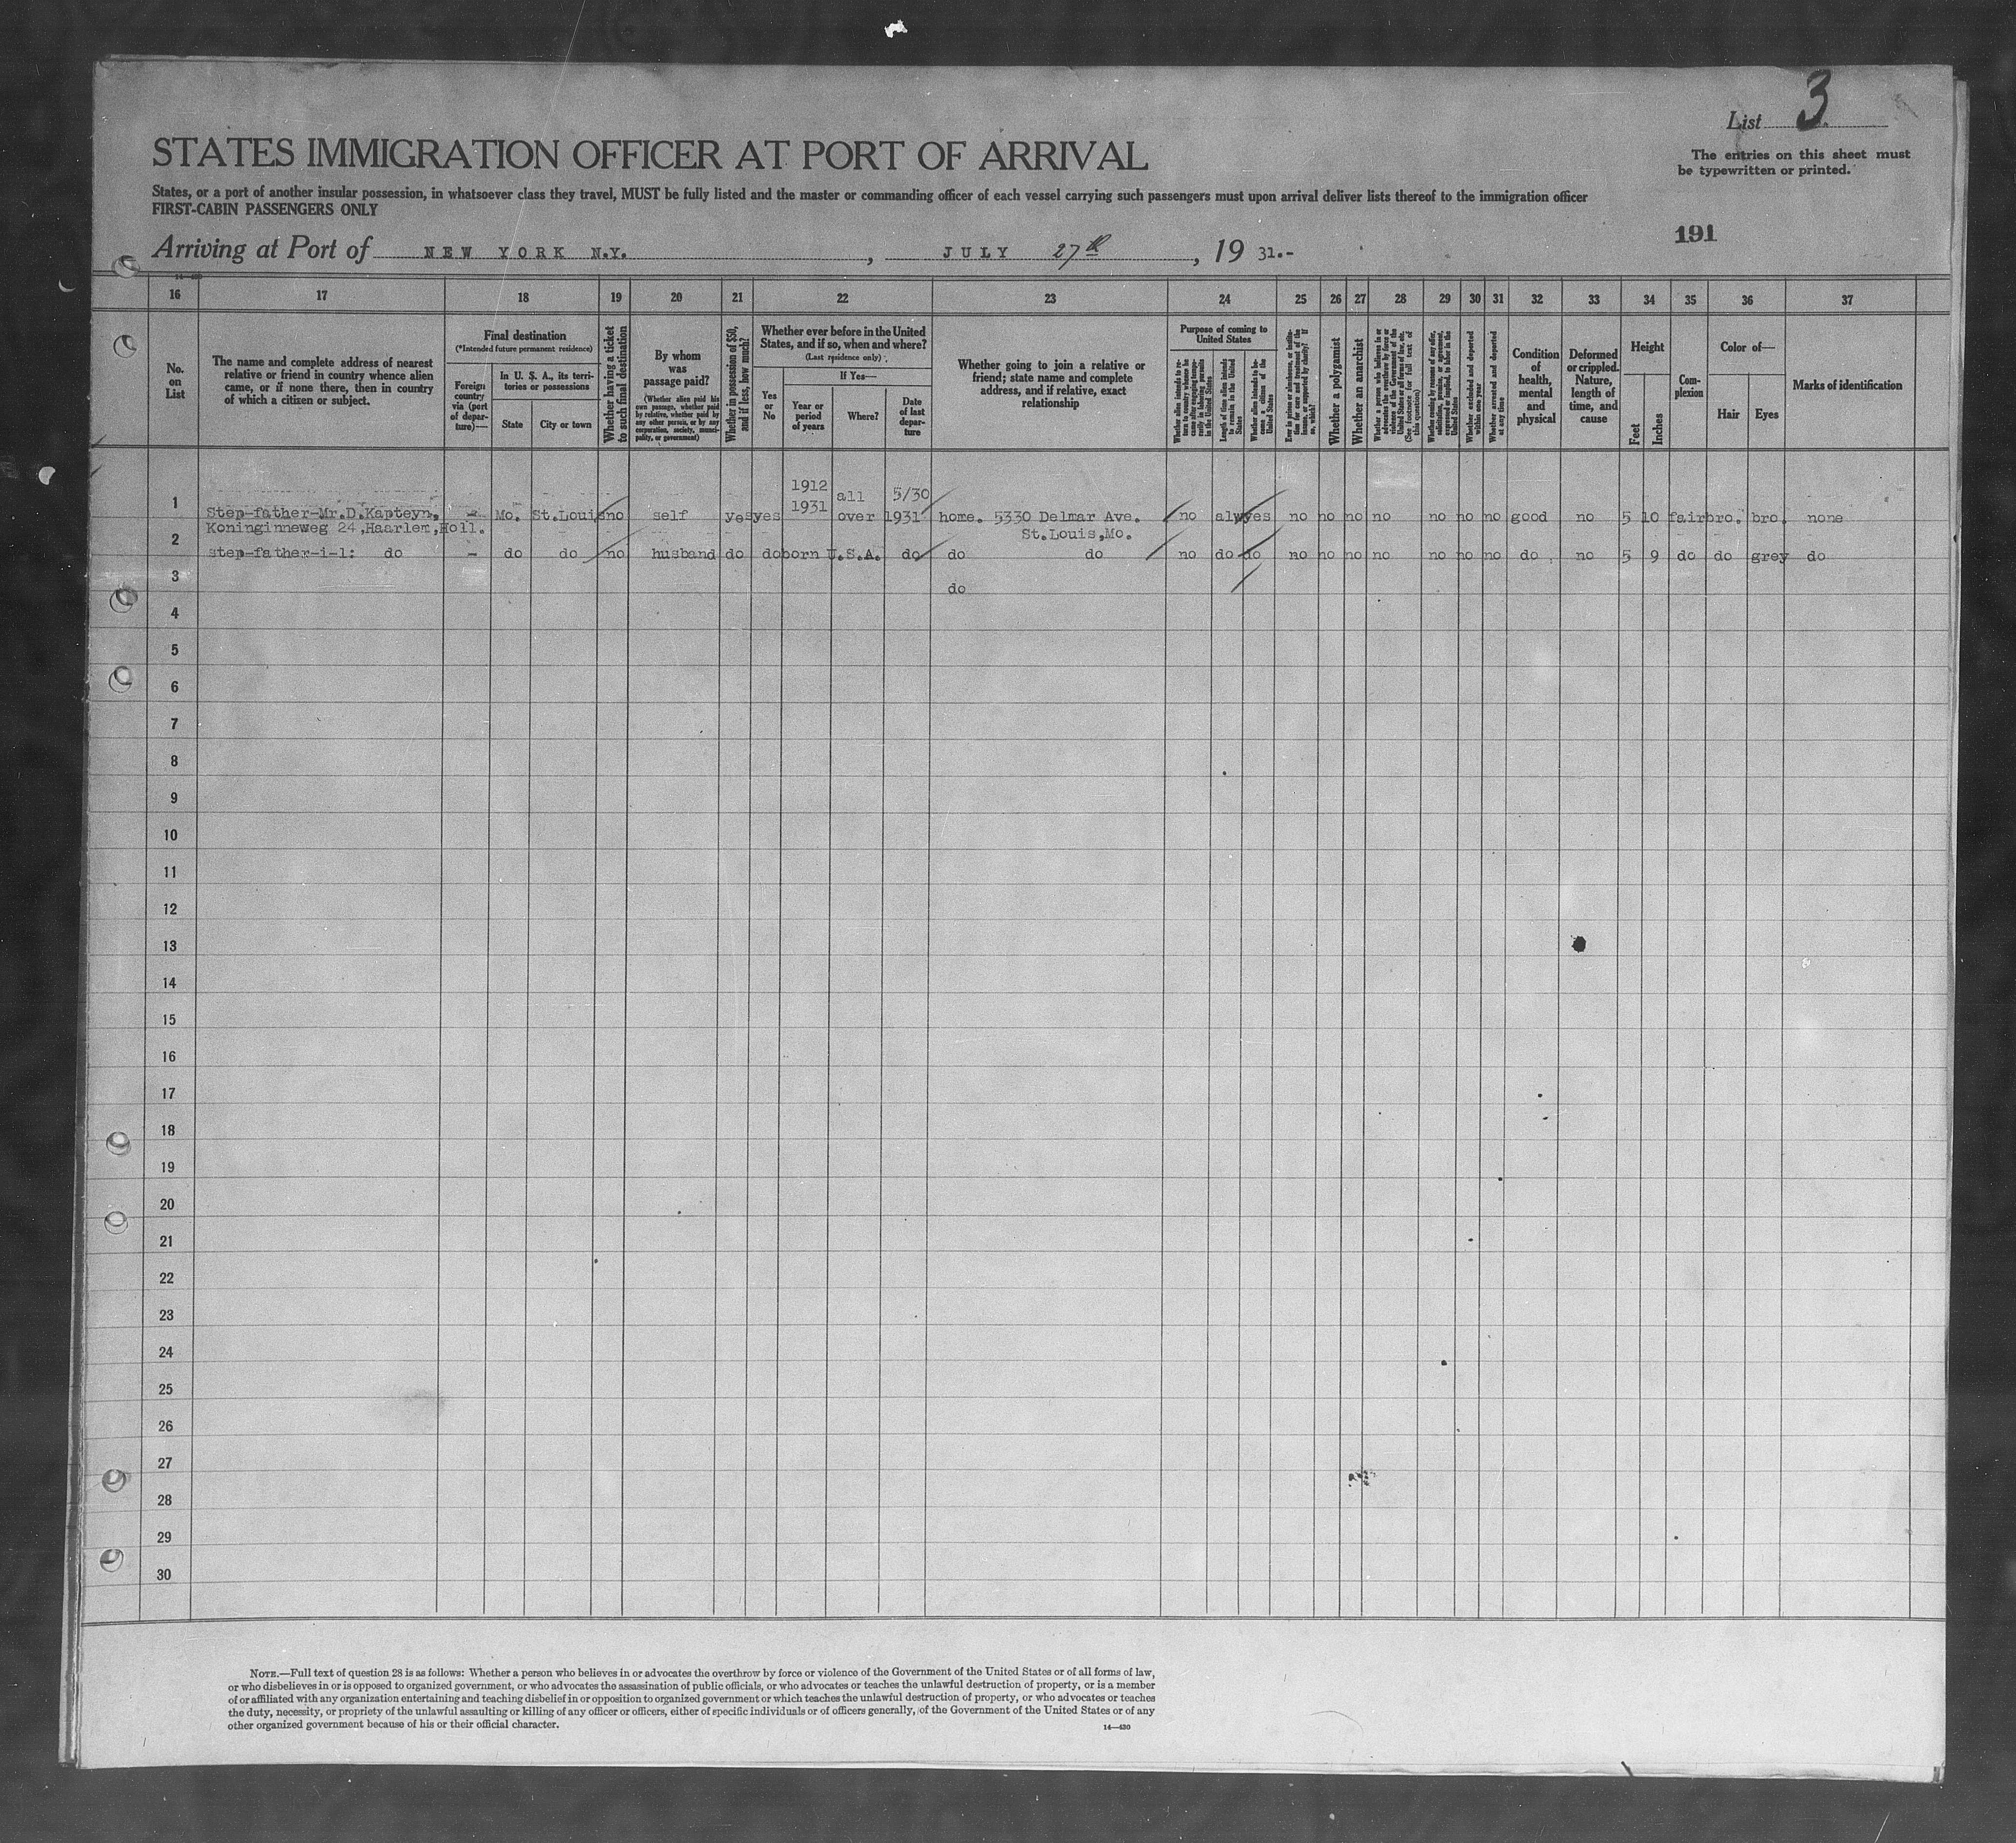 List 3.
The entries on this sheet must
be typewritten or printed.
STATES IMMIGRATION OFFICER AT PORT OF ARRIVAL
States, or a port of another insular possession, in whatsoever class they travel, MUST be fully listed and the master or commanding officer of each vessel carrying such passengers must upon arrival deliver lists thereof to the immigration officer
FIRST-CABIN PASSENGERS ONLY
191
Arriving at Port of NEW YORK N.Y., JULY 27th, 19 31.-
16 17 18 19 20 21 22 23 24 25 26 27 28 29 30 31 32 33 34 35 36 37
No.
on
List
The name and complete address of nearest
relative or friend in country whence alien
came, or if none there, then in country
of which a citizen or subject.
Final destination
(*Intended future permanent residence)
Foreign
country
via (port
of depar-
ture)—
In U. S. A., its terri-
tories or possessions
State
City or town
Whether having a ticket
to such final destination
By whom
was
passage paid?
(Whether alien paid his
own passage, whether paid
by relative, whether paid by
any other person, or by any
corporation, society, munici-
pality, or government)
Whether in possession of $50,
and if less, how much?
Whether ever before in the United
States, and if so, when and where?
(Last residence only)
Yes
or
No
If Yes—
Year or
period
of years
Where?
Date
of last
depar-
ture
Whether going to join a relative or
friend; state name and complete
address, and if relative, exact
relationship
Purpose of coming to
United States
Length of time alien intends
to remain in the United
States
Whether alien intends to be-
come a citizen of the
United States
Whether a polygamist
Whether an anarchist
Whether excluded and deported
within one year
Whether arrested and deported
at any time
Condition
of
health,
mental
and
physical
Deformed
or crippled.
Nature,
length of
time, and
cause
Height
Feet
Inches
Com-
plexion
Color of—
Hair
Eyes
Marks of identification
1912 all 5/30
1 Step-father-Mr.D.Kapteyn, - Mo. St.Louis no self yes yes 1931 over 1931 home. 5330 Delmar Ave. no alw yes no no no no no no no good no 5 10 fair bro. bro. none
Koninginneweg 24,Haarlem,Holl. St.Louis,Mo.
2 step-father-i-l: do - do do no husband do do born U.S.A. do do do no do do no no no no no no no do no 5 9 do do grey do
3 do
4
5
6
7
8
9
10
11
12
13
14
15
16
17
18
19
20
21
22
23
24
25
26
27
28
29
30
NOTE.—Full text of question 28 is as follows: Whether a person who believes in or advocates the overthrow by force or violence of the Government of the United States or of all forms of law,
or who disbelieves in or is opposed to organized government, or who advocates the assassination of public officials, or who advocates or teaches the unlawful destruction of property, or is a member
of or affiliated with any organization entertaining and teaching disbelief in or opposition to organized government or which teaches the unlawful destruction of property, or who advocates or teaches
the duty, necessity, or propriety of the unlawful assaulting or killing of any officer or officers, either of specific individuals or of officers generally, of the Government of the United States or of any
other organized government because of his or their official character.
14—430